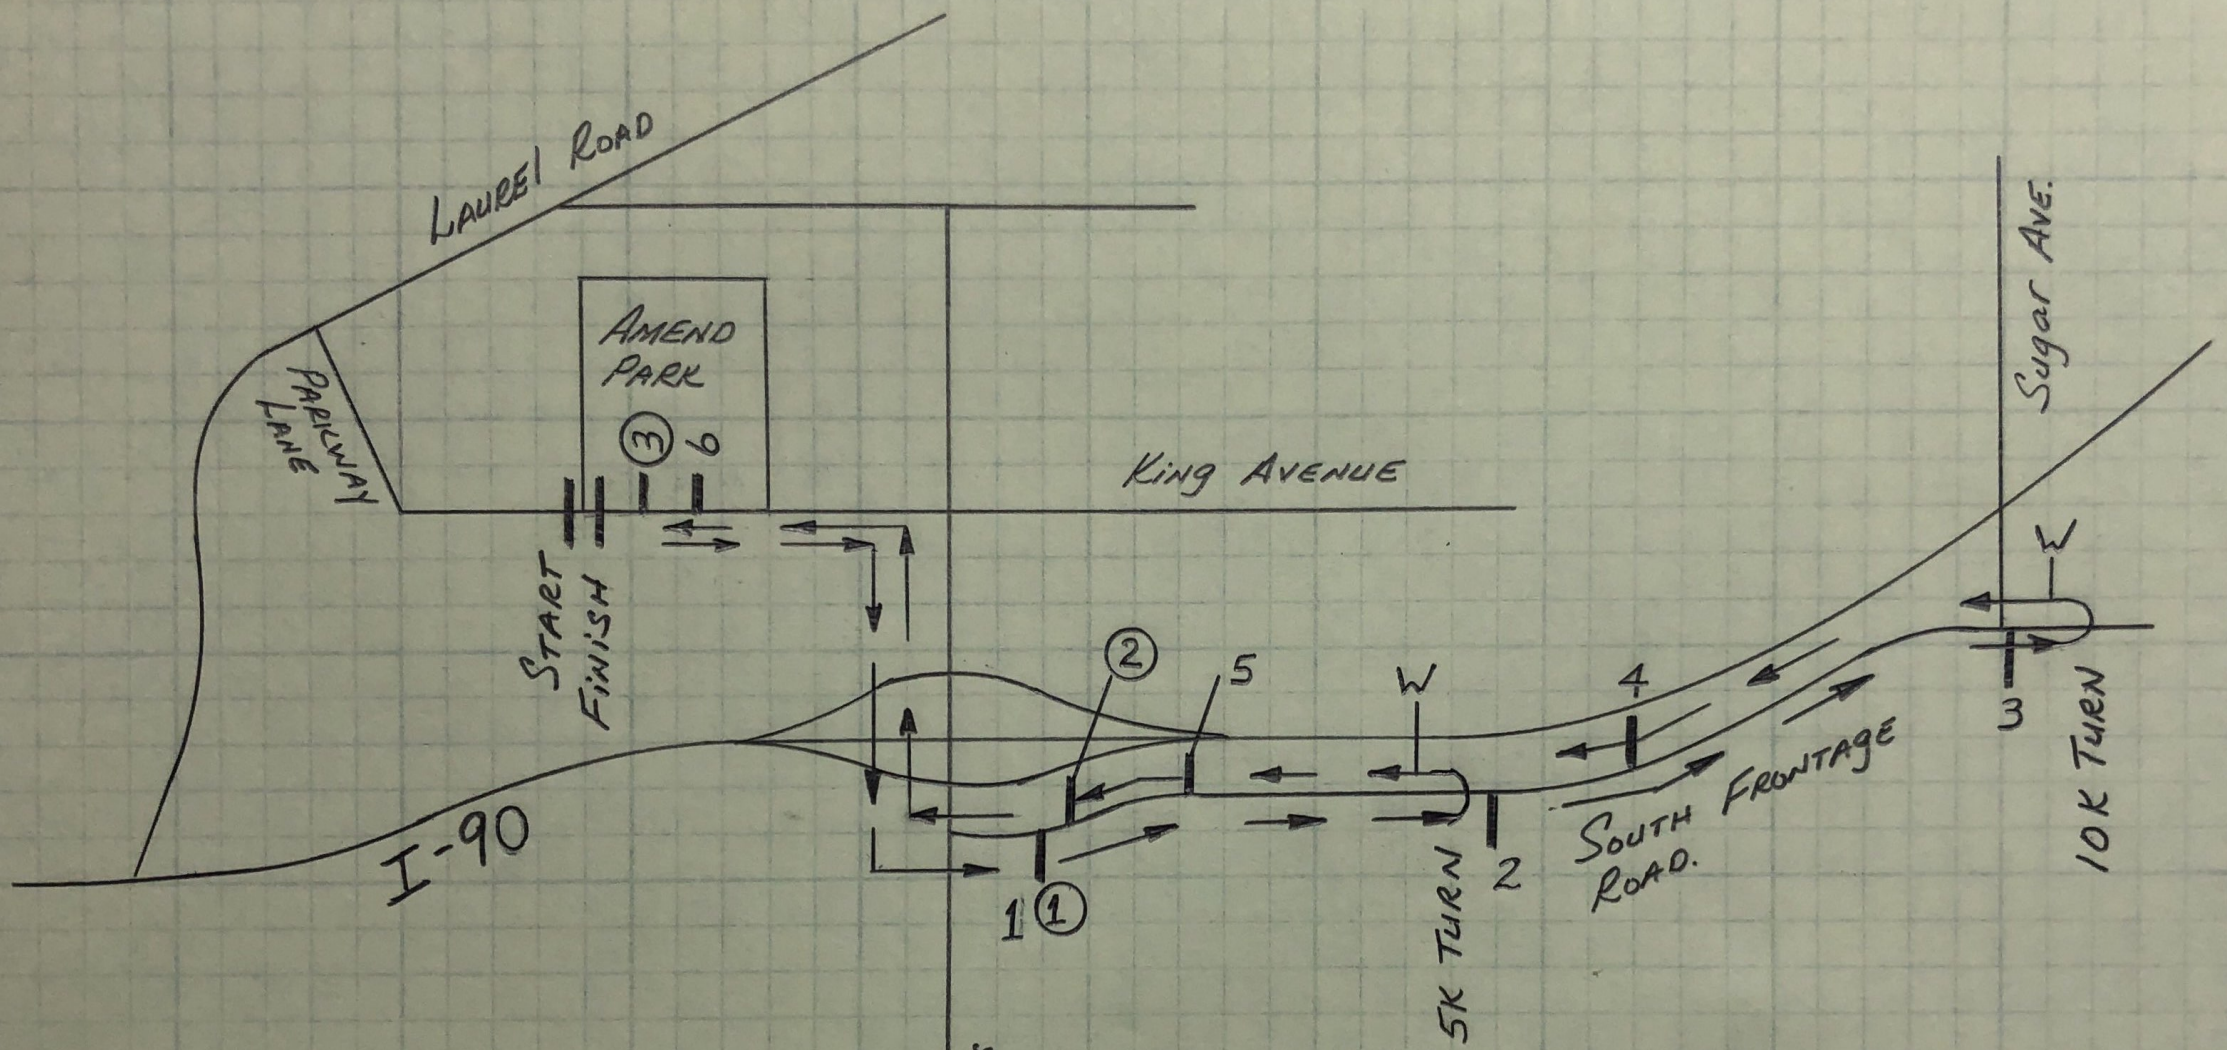 LAUREL ROAD
AMEND
PARK
PARKWAY
LANE
③
6
King AVENUE
Sugar AVE.
START
FINISH
②
5
W
4
W
3
10K TURN
I-90
1 ①
5K TURN
2
SOUTH FRONTAGE
ROAD.